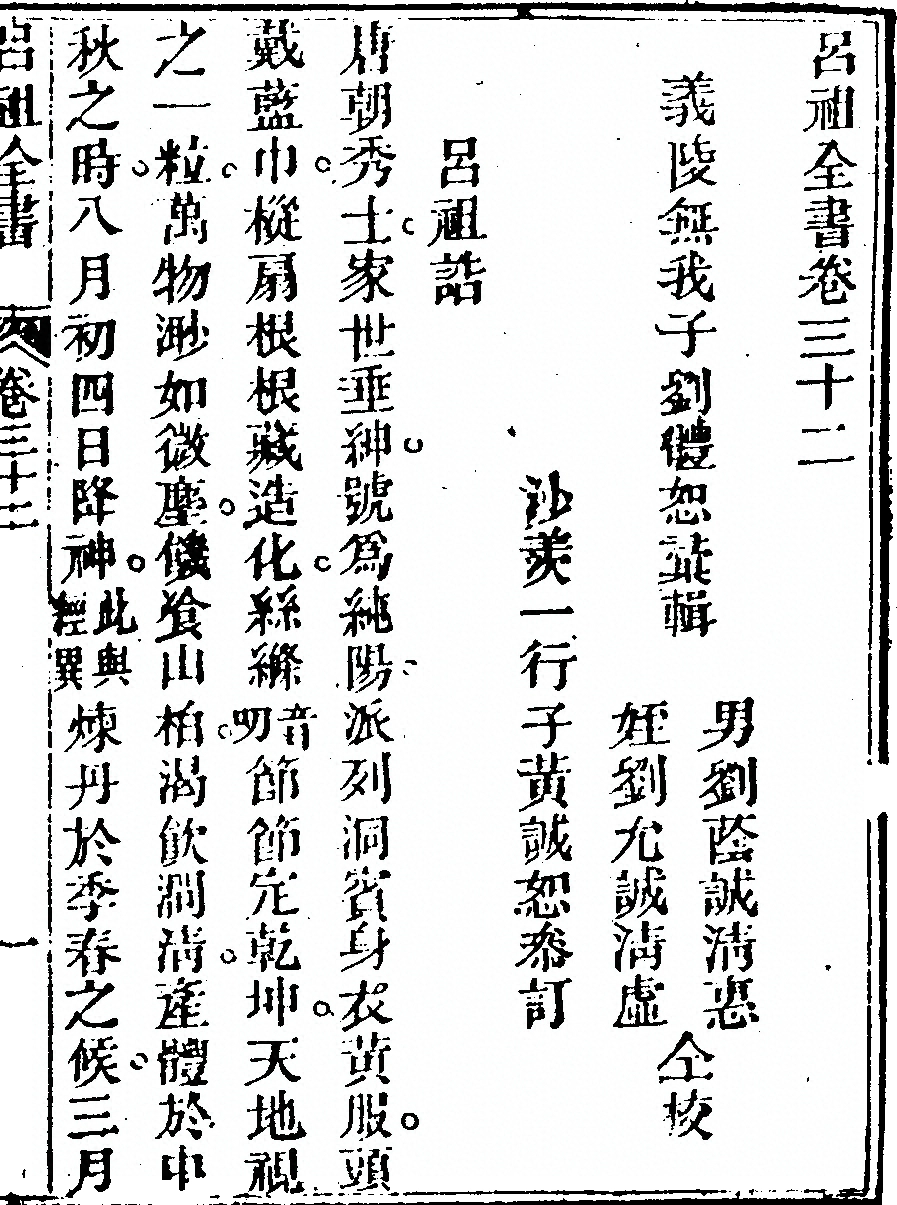 呂祖全書卷三十二
義陵無我子劉體恕彙輯
男劉蔭誠清惠
姪劉允誠清虛
仝校
沙羨一行子黃誠恕叅訂
呂祖誥
唐朝秀士家世垂紳號爲純陽派列洞賓身衣黃服頭
戴藍巾樅扇根根藏造化絲縧音叨節節定乾坤天地視
之一粒萬物渺如微塵饑飡山柏渴飲澗淸產體於中
秋之時八月初四日降神此與經異煉丹於季春之候三月
呂祖全書 卷三十二 一